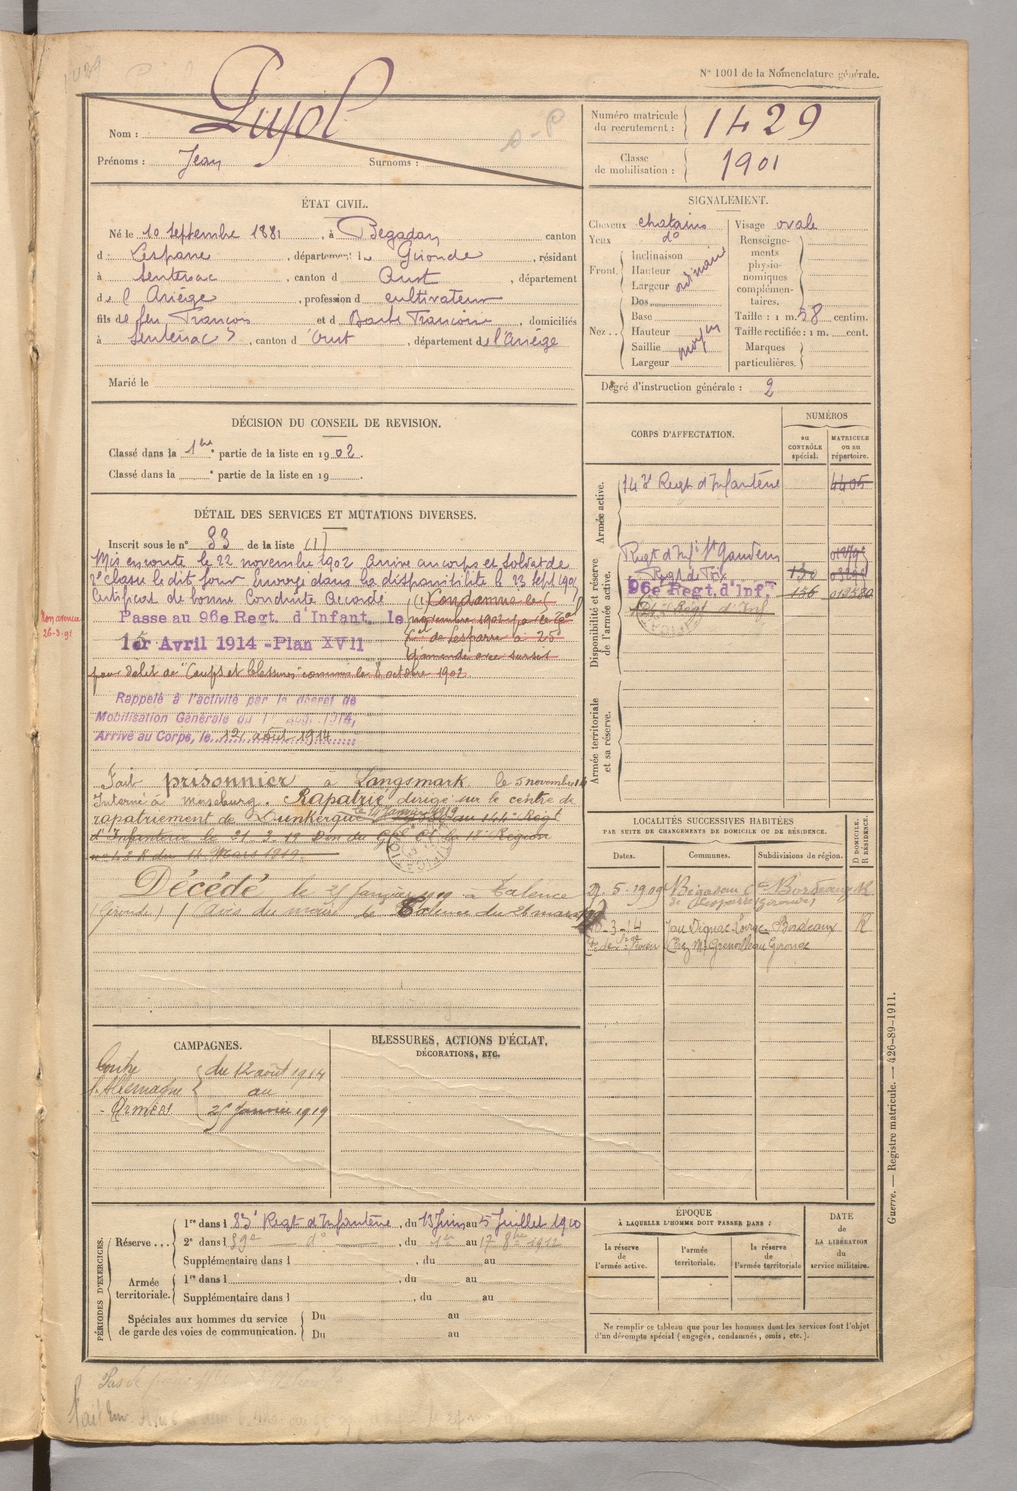 1429
N° 1001 de la Nomenclature générale.
Nom : Pujol
Prénoms : Jean Surnoms :
Numéro matricule du recrutement : 1429
Classe de mobilisation : 1901
ÉTAT CIVIL.
Né le 10 septembre 1881, à Bégadan canton
d Lesparre, département d Gironde, résidant
à Sentenac, canton d Oust, département
de l'Ariège, profession d cultivateur
fils de feu François et d Barbe Françoise, domiciliés
à Sentenac, canton d'Oust, département de l'Ariège
Marié le
SIGNALEMENT.
Cheveux chatains
Yeux d°
Front. Inclinaison
Hauteur ordinaire
Largeur
Nez .. Dos
Base
Hauteur moyen
Saillie
Largeur
Visage ovale
Renseignements physionomiques complémentaires.
Taille : 1 m. 58 centim.
Taille rectifiée : 1 m. cent.
Marques particulières.
Dégré d'instruction générale : 2
DÉCISION DU CONSEIL DE REVISION.
Classé dans la 1re partie de la liste en 1902.
Classé dans la partie de la liste en 19
DÉTAIL DES SERVICES ET MUTATIONS DIVERSES.
Inscrit sous le n° 33 de la liste (1)
Mis en route le 22 novembre 1902 Arrivé au corps et soldat de
2e classe le dit jour Envoyé dans la disponibilité le 23 sept 190
Certificat de bonne Conduite Accordé (1) Condamné le
Passe au 96e Regt. d'Infant. le
novembre 1902 par le
1er Avril 1914 - Plan XVII
de Lesparre à 25
d'amende avec sursis
pour délit de "Coups et blessures" commis le 8 octobre 1902.
Non amnistié
26-3-91
Rappelé à l'activité par le décret de
Mobilisation Générale du 1er Août 1914,
Arrivé au Corps, le 12 août 1914
Fait prisonnier à Langsmark le 5 novembre 14
Interné à Merseburg. Rapatrié, dirigé sur le centre de
rapatriement de Dunkerque le 14 janvier 1919 au 144e Regt
d'Infanterie le 21.2.19 Don du Gal Ct la 18e Région
du 14 Mars 1919
Décédé le 25 janvier 1919 à Talence
(Gironde) (Avis du maire de Talence du 26 mars
CORPS D'AFFECTATION.
NUMÉROS
au CONTRÔLE spécial.
MATRICULE ou au répertoire.
Armée active.
143e Regt d'Infanterie 4405
Disponibilité et réserve de l'armée active.
Regt d'Inf St Gaudens
Regt de Foix 130
96e Regt. d'Inf. 156
Regt d'Inf
Armée territoriale et sa réserve.
LOCALITÉS SUCCESSIVES HABITÉES
PAR SUITE DE CHANGEMENTS DE DOMICILE OU DE RÉSIDENCE.
Dates. Communes. Subdivisions de région. D DOMICILE. R RÉSIDENCE.
5-1909 Bégadan Bordeaux R
de Lesparre (Gironde)
-3-14 Jau Dignac Loirac Bordeaux R
Chez Mr Grenouilleau Gironde
CAMPAGNES.
Contre l'Allemagne
Armées
du 12 août 1914
au
25 Janvier 1919
BLESSURES, ACTIONS D'ÉCLAT,
DÉCORATIONS, ETC.
PÉRIODES D'EXERCICES.
Réserve ... 1re dans l 83e Regt d'Infanterie, du 13 Juin au 5 Juillet 1910
2e dans l 59e d°, du 1er au 17 8bre 1912
Supplémentaire dans l , du au
Armée territoriale. 1re dans l , du au
Supplémentaire dans l , du au
Spéciales aux hommes du service de garde des voies de communication. Du au
Du au
ÉPOQUE
À LAQUELLE L'HOMME DOIT PASSER DANS :
la réserve de l'armée active.
l'armée territoriale.
la réserve de l'armée territoriale
DATE de LA LIBÉRATION du service militaire.
Ne remplir ce tableau que pour les hommes dont les services font l'objet
d'un décompte spécial (engagés, condamnés, omis, etc.).
Guerre. — Registre matricule. — 426-89-1911.